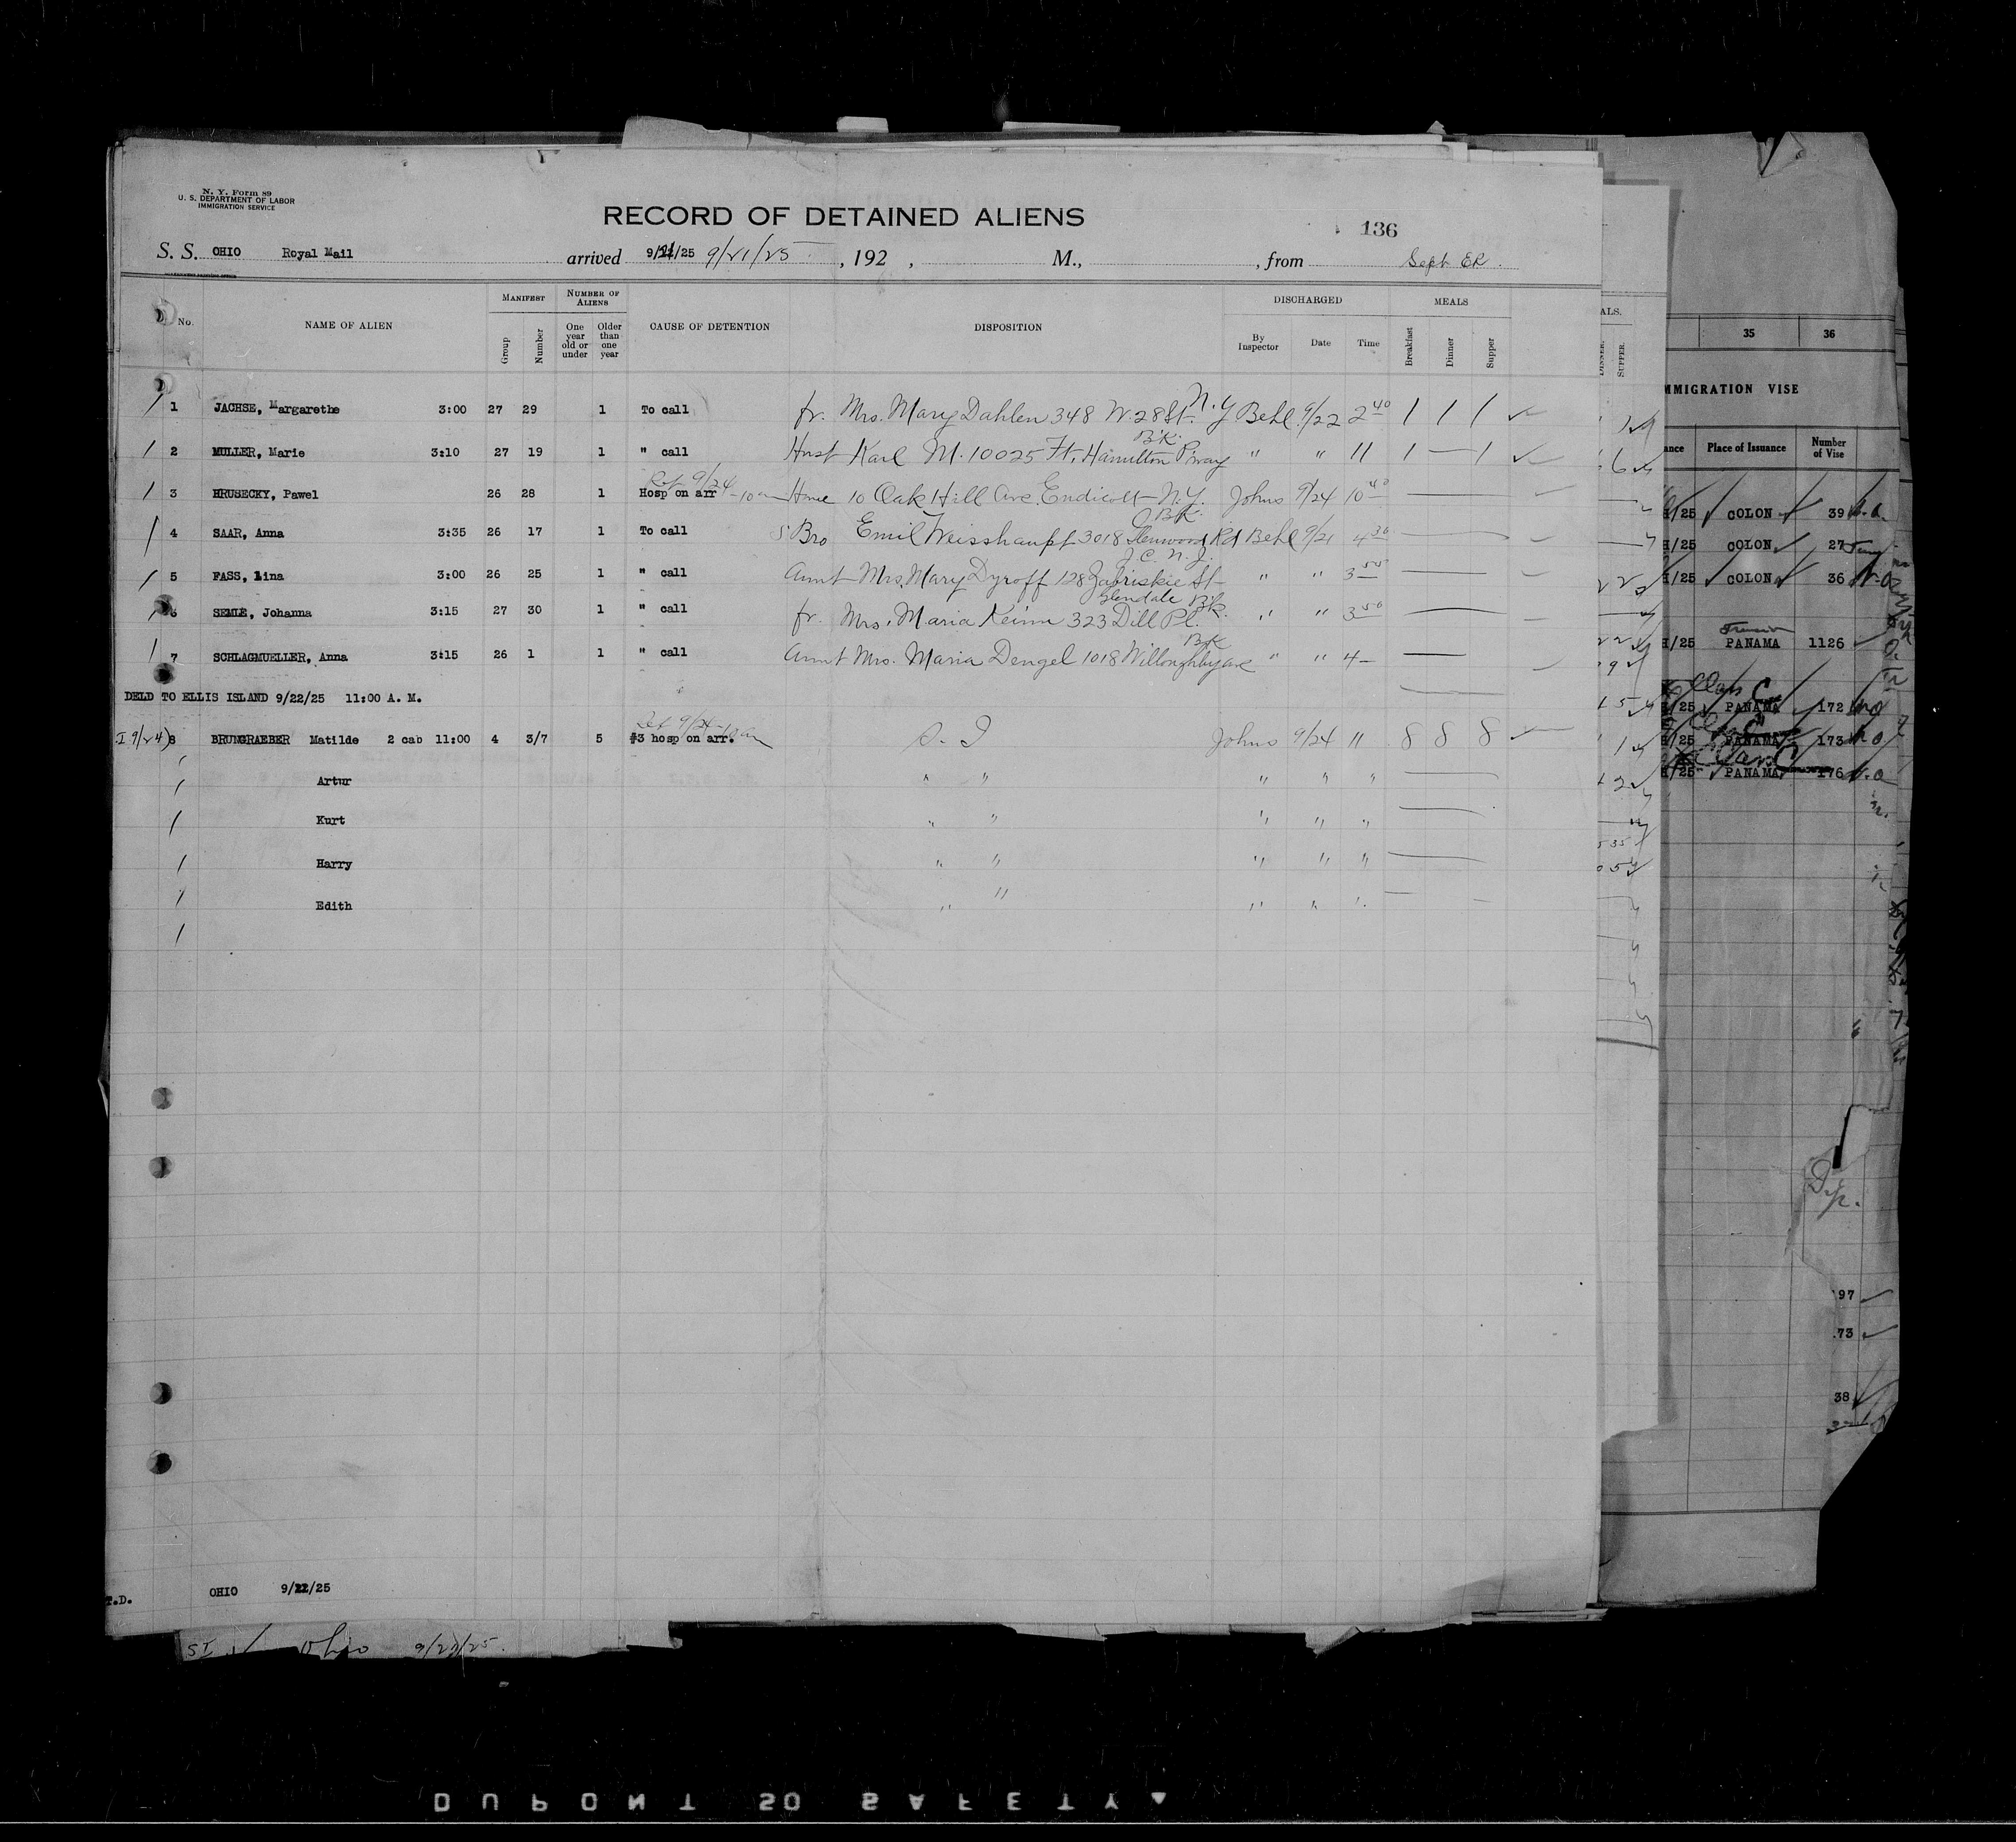 N. Y. Form 89
U. S. DEPARTMENT OF LABOR
IMMIGRATION SERVICE
RECORD OF DETAINED ALIENS
136
S. S. OHIO Royal Mail arrived 9/21/25 9/21/25 , 192 , M., , from Sept ER.
No. NAME OF ALIEN MANIFEST NUMBER OF ALIENS CAUSE OF DETENTION DISPOSITION DISCHARGED MEALS
Group Number One year old or under Older than one year By Inspector Date Time Breakfast Dinner Supper
N.Y
1 JACHSE, Margarethe 3:00 27 29 1 To call fr. Mrs. Mary Dahlen 348 W. 28 St. Behl 9/22 2 40 1 1 1
Bk.
2 MULLER, Marie 3:10 27 19 1 " call Husb Karl M. 10025 Ft. Hamilton P'way " " 11 1 — 1
9/24 – 10
3 HRUSECKY, Pawel 26 28 1 Hosp on arr Home 10 Oak Hill Ave. Endicott N.Y. Johns 9/24 10 40
Bk.
4 SAAR, Anna 3:35 26 17 1 To call Bro Emil Weisshaupt 3018 Glenwood Rd Behl 9/21 4 30
J.C. N.J.
5 FASS, Lina 3:00 26 25 1 " call Aunt Mrs. Mary Dyroff 128 Zabriskie St " " 3 50
Glendale Bk.
6 SEMLE, Johanna 3:15 27 30 1 " call fr. Mrs. Maria Keimn 323 Dill Pl. " " 3 50
Bk
7 SCHLAGMUELLER, Anna 3:15 26 1 1 " call Aunt Mrs. Maria Dengel 1018 Willoughby ave " " 4
DELD TO ELLIS ISLAND 9/22/25 11:00 A. M.
9/24 – 10 am
8 BRUNGRAEBER Matilde 2 cab 11:00 4 3/7 5 #3 hosp on arr. S. I Johns 9/24 11 8 8 8
Artur " " " " "
Kurt " " " " "
Harry " " " " "
Edith " " " " "
T.D. OHIO 9/22/25
SI Ohio 9/21/25.
ALS.
DINNER. SUPPER.
35 36
MMIGRATION VISE
ance Place of Issuance Number of Vise
/25 COLON 39
/25 COLON 27
/25 COLON 36
/25 PANAMA 1126
/25 PANAMA 172
/25 PANAMA 173
/25 PANAMA 176
97
73
38
DUPONT SO SAFETY